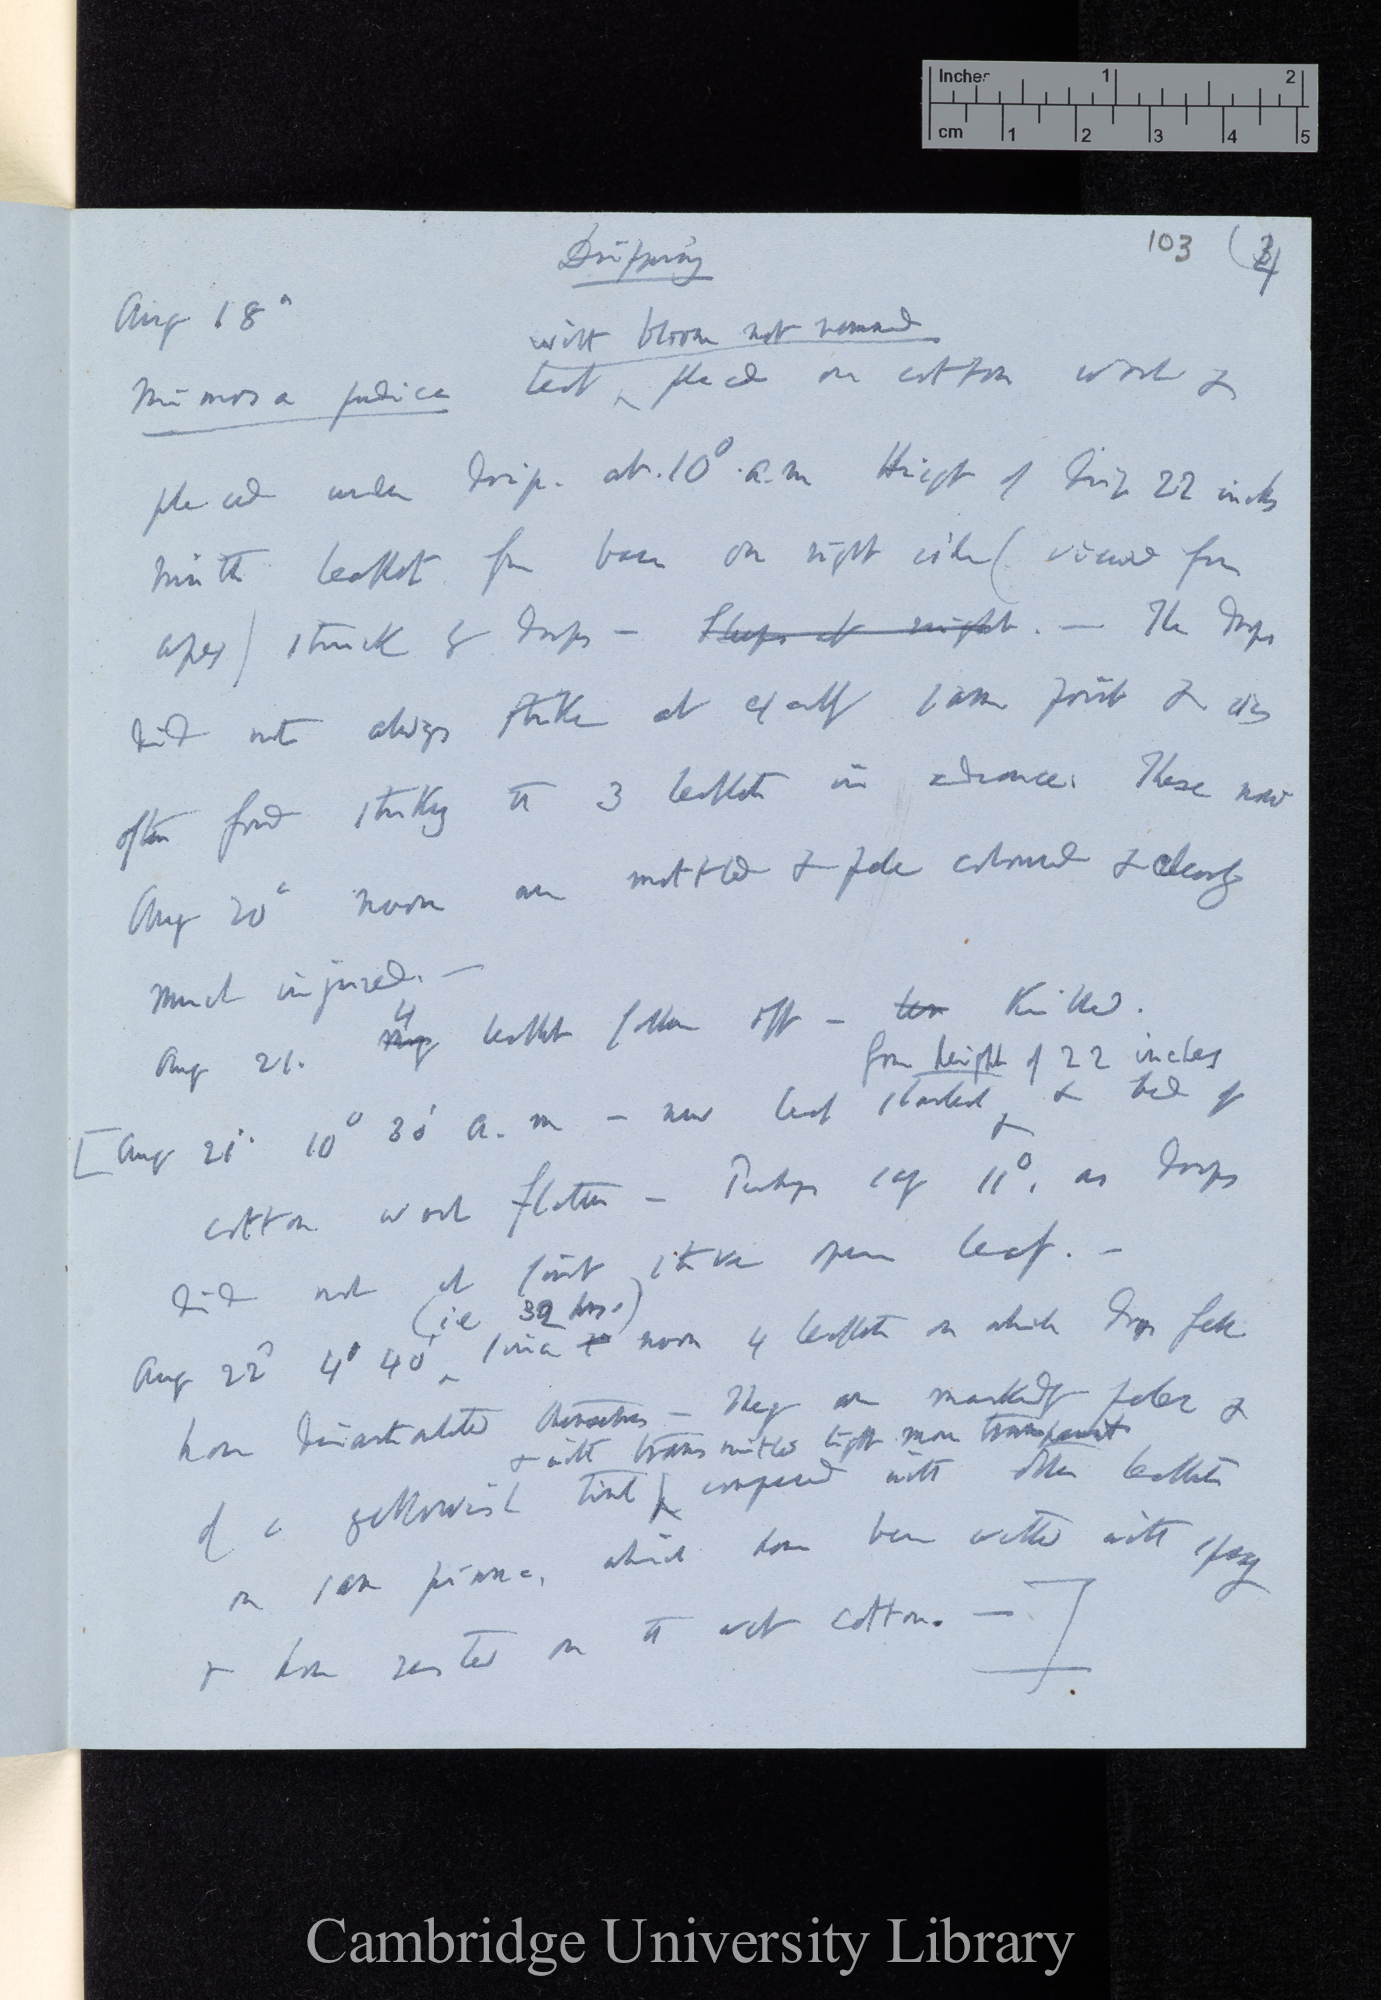 Inches 1 2
cm 1 2 3 4 5
103 (4
Dripping
Aug 18°
with bloom not removed
Mimosa pudica leaf placed on cotton wool &
placed under drip. at. 10° a.m Height of drip 22 inches
Ninth leaflet from base on right side (viewed from
apex) struck by drops — Sleeps at night. — The drops
did not always strike at exactly same point & was
often found striking the 3 leaflets in advance. These now
Aug 20° noon are mottled & pale coloured & clearly
much injured. —
Aug 21. 4 leaflets fallen off — killed.
from height of 22 inches
[Aug 21° 10° 30' a.m — new leaf started & bed of
cotton wool flatter — Perhaps say 11°, as drops
did not at first strike open leaf. —
(ie 32 hrs.)
Aug 22° 4° 40' since noon 4 leaflets on which drops fell
have disarticulated themselves — They are markedly paler &
& with transmitted light more transparent
of a yellowish tint compared with other leaflets
on same pinna, which have been wetted with spray
& have rested on the wet cotton. — ]
Cambridge University Library